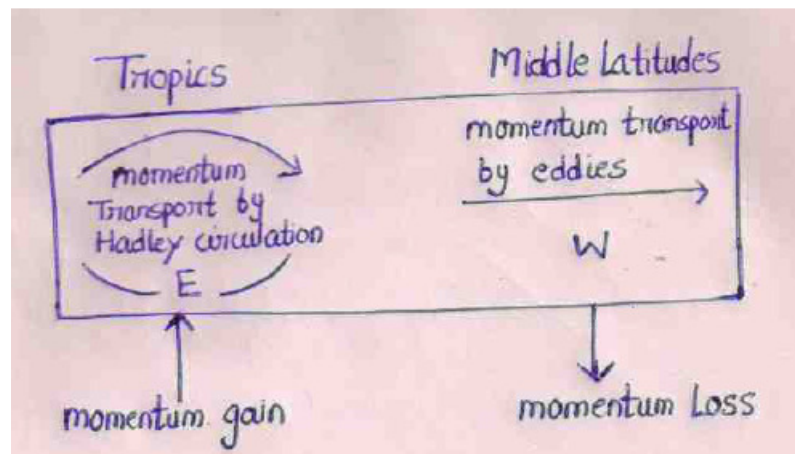 Tropics
Middle Latitudes
momentum
Transport by
Hadley circulation
E
momentum transport
by eddies
W
momentum gain
momentum Loss